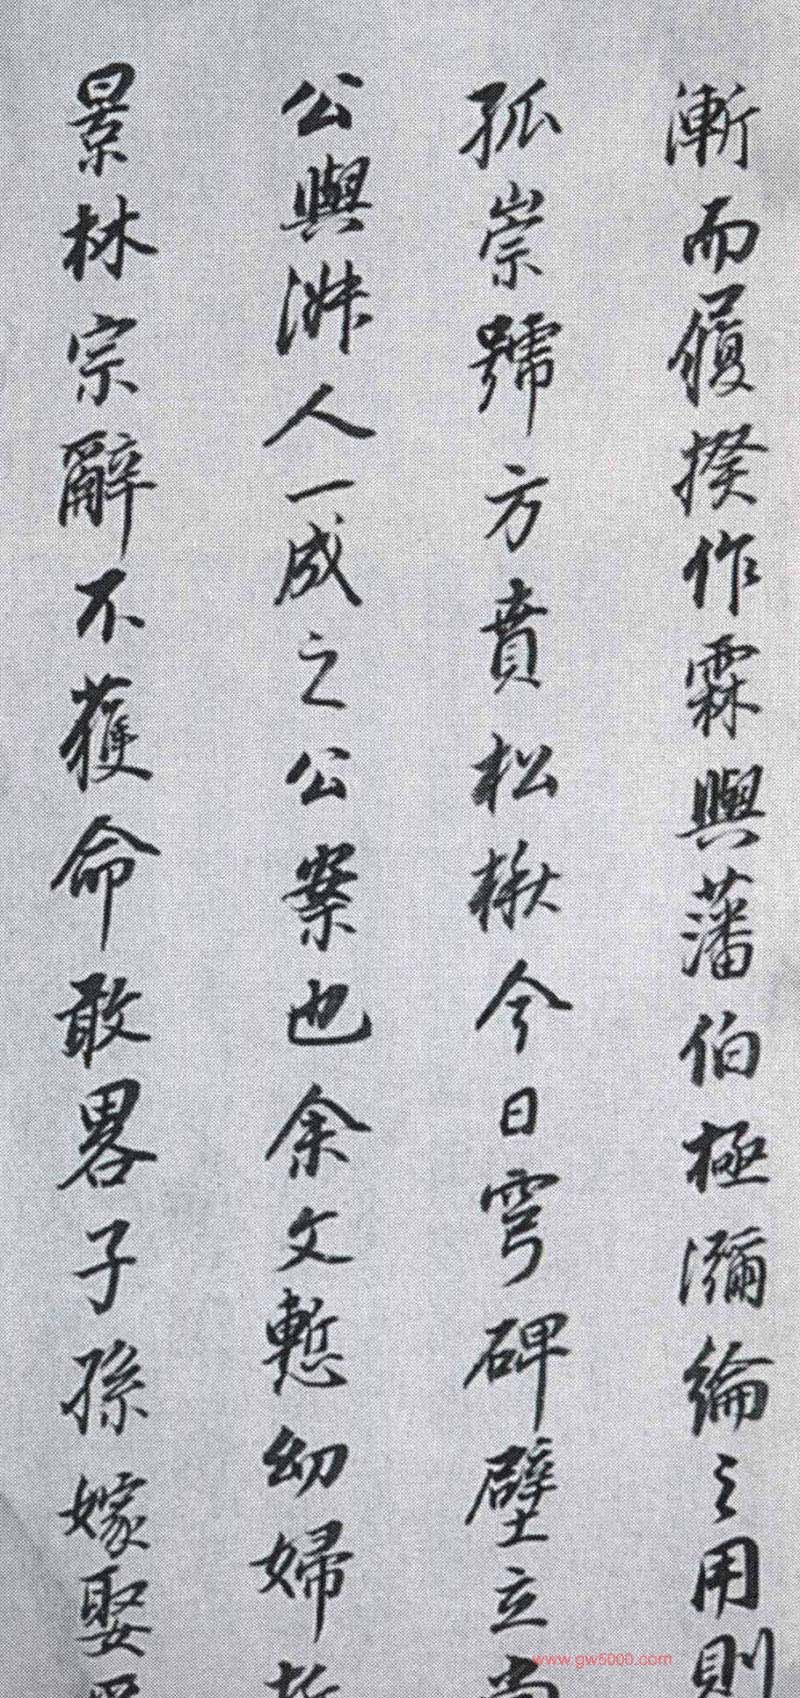 漸而履揆作霖與藩伯極瀰綸之用則
孤崇號方賁松楸今日穹碑壁立
公與淋人一成之公案也余文慙幼婦
景林宗辭不獲命敢畧子孫嫁娶
www.gw5000.com